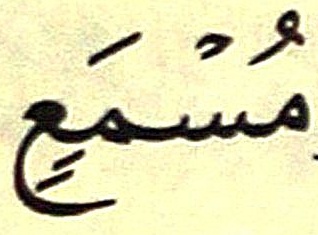 مُسْمَعٍ